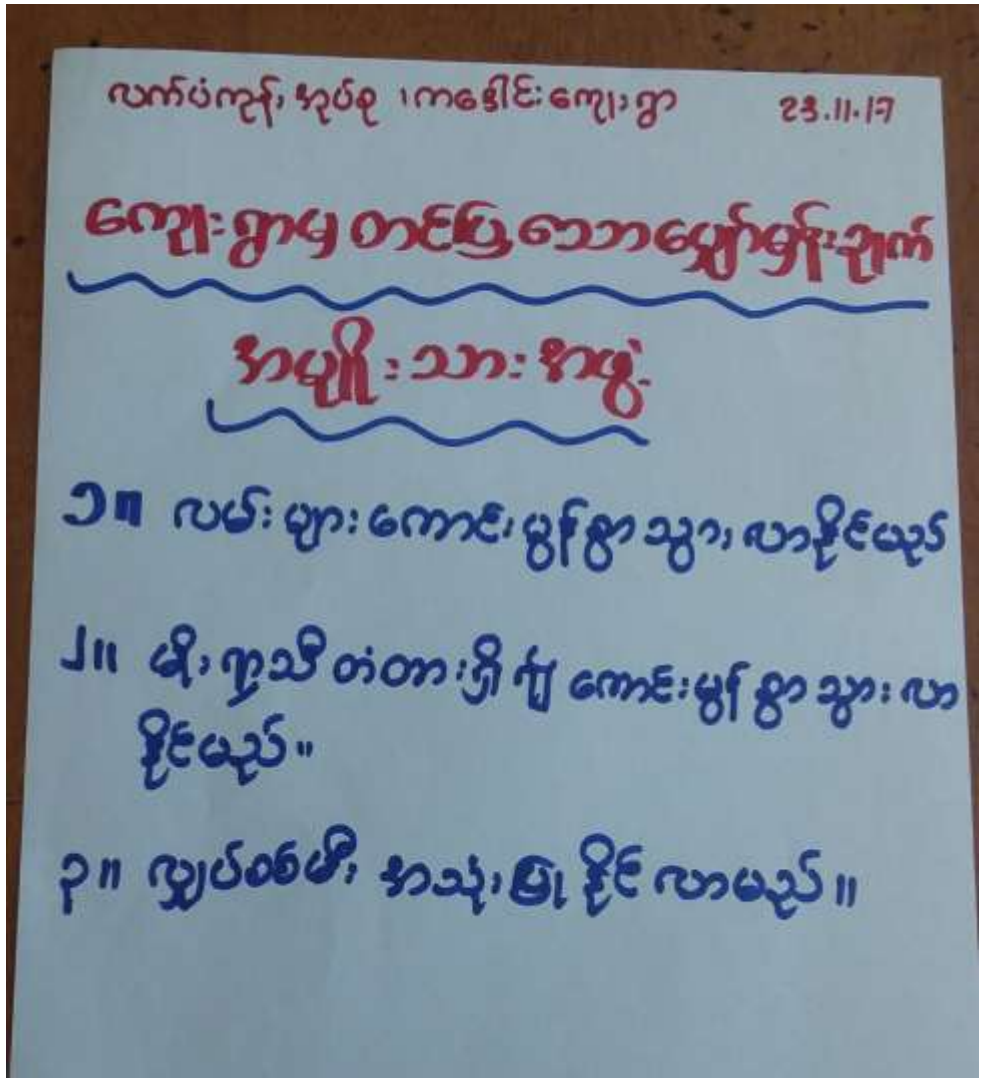 လက်ပံကုန်းအုပ်စု ၊ ကဒေါင်းကျေးရွာ 23.11.17
ကျေးရွာမှ တင်ပြသောမျှော်မှန်းချက်
အမျိုးသားအဖွဲ့
၁။ လမ်းများကောင်းမွန်စွာသွားလာနိုင်မည်
၂။ မိုးရာသီတံတားရှိ၍ ကောင်းမွန်စွာသွားလာ
နိုင်မည်။
၃။ လျှပ်စစ်မီးအသုံးပြုနိုင်လာမည်။